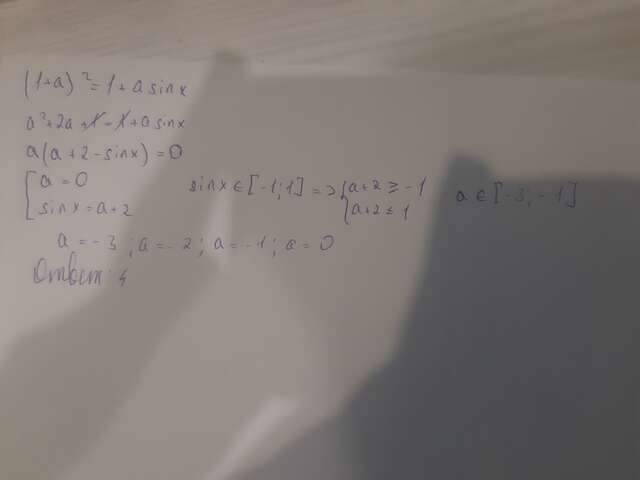 (1+a)² = 1 + a sinx
a² + 2a + 1 - 1 + a sinx
a(a + 2 - sinx) = 0
[a = 0
sinx = a + 2 sinx ∈ [-1; 1] => {a+2 ≥ -1
a+2 ≤ 1 a ∈ [-3; -1]
a = -3; a = -2; a = -1; a = 0
Ответ: 4